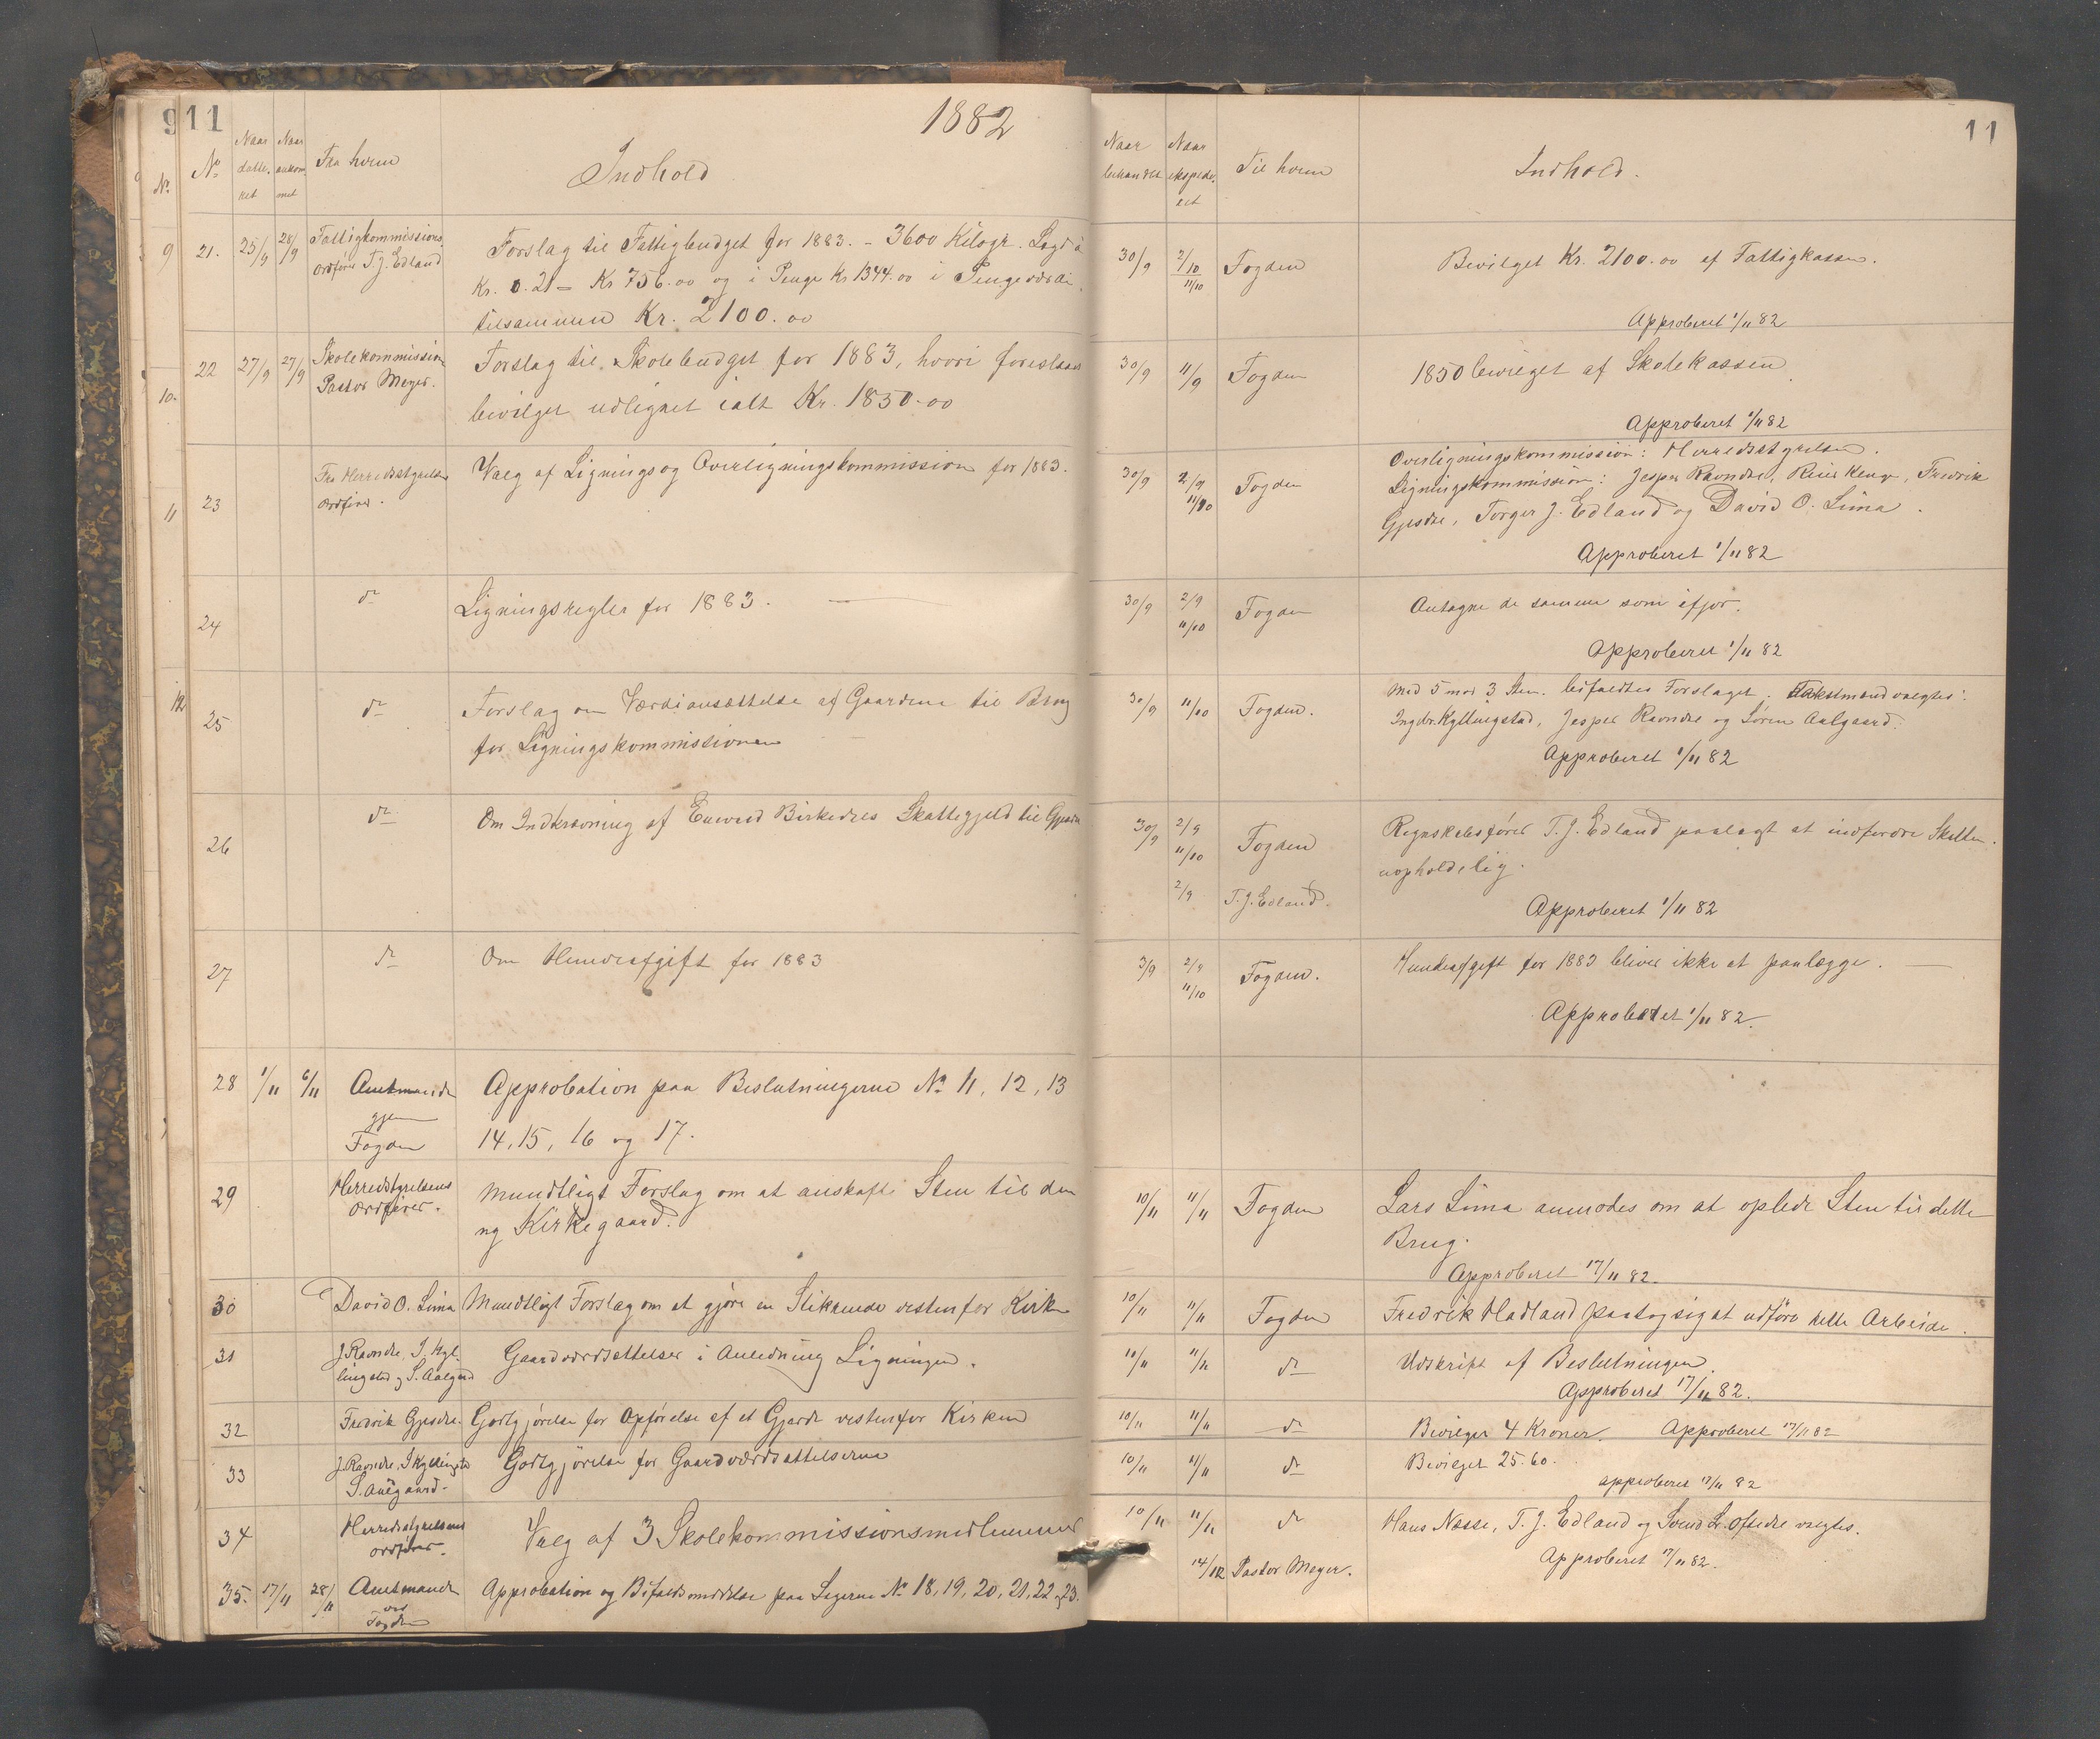 911
1882
No
No
Naar datte- ret
Naar ankom- met
Fra hvem
Indhold
9
21.
25/9
28/9
Fattigkommissions
Ordfører T. J. Edland
Forslag til Fattigbudget for 1883. - 3600 Kilogr. Lagd à
Kr. 0.21 = Kr 756.00 og i Penge Kr 1344.00 i Pengeværdi
tilsammen Kr. 2100.00
10.
22
27/9
27/9
Skolekommission
Pastor Meyer.
Forslag til Skolebudget for 1883, hvori foreslaaes
bevilget udlignet ialt Kr. 1850.00
11
23
Fra Herredsstyrelsens
Ordfører.
Valg af Lignings og Overligningskommission for 1883.
24
do
Ligningsregler for 1883.
12
25
do
Forslag om Værdiansættelse af Gaardene til Brug
for Ligningskommissionen
26
do
Om Indkrævning af Enevald Birkedres Skattegjeld til Gjesdal
27
do
Om Hundeafgift for 1883
28
1/11
6/11
Amtmanden
gjen
Fogden
Approbation paa Beslutningerne No 11, 12, 13
14, 15, 16 og 17.
29
Herredsstyrelsens
Ordfører.
Mundtligt Forslag om at anskaffe Sten til den
ny Kirkegaard.
30
David O. Lima
Mundtligt Forslag om at gjøre en Stikrende vestenfor Kirken
31
J. Ravndal, I. Kyl-
lingstad og S. Aalgaard
Gaardværdsættelser i Anledning Ligningen.
32
Fredrik Gjesdal
Godtgjørelse for Opførelse af et Gjærde vestenfor Kirken
33
J. Ravndal, I Kyllingstad
S. Aalgaard.
Godtgjørelse for Gaardværdsættelserne
34
Herredsstyrelsens
Ordfører.
Valg af 3 Skolekommissionsmedlemmer
35.
17/11
28/11
Amtmanden
ved
Fogden
Approbation og Bifaldsmeddelelse paa Sagerne No 18, 19, 20, 21, 22 og 23.
11
Naar behandlet
Naar ekspede- ret
Til hvem
Indhold.
30/9
2/10
11/10
Fogden
Bevilget Kr. 2100.00 af Fattigkassen.
Approberet 1/11 82
30/9
11/9
Fogden
1850 bevilget af Skolekassen
Approberet 1/11 82
30/9
2/9
11/10
Fogden
Overligningskommission: Herredsstyrelsen.
Ligningskommission: Jesper Ravndal, Reier Kenv, Fredrik
Gjesdal, Torger J. Edland og David O. Lima.
Approberet 1/11 82
30/9
2/9
11/10
Fogden
Antagne de samme som ifjor.
Approberet 1/11 82
30/9
11/10
Fogden.
Med 5 mod 3 Stem. bifaldtes Forslaget. Takstmænd valgtes:
Ingebr. Kyllingstad, Jesper Ravndal og Søren Aalgaard.
Approberet 1/11 82
30/9
2/9
11/10
Fogden
2/9
T. J. Edland.
Regnskabsfører T. J. Edland paalagt at indfordre Skatten
uopholdelig.
Approberet 1/11 82
3/9
2/9
11/10
Fogden.
Hundeafgift for 1883 bliver ikke at paalægge.
Approberet 1/11 82.
10/11
11/11
Fogden
Lars Lima anmodes om at oplede Sten til dette
Brug.
Approberet 17/11 82.
10/11
11/11
Fogden
Fredrik Hadland paatog sig at udføre dette Arbeide.
10/11
11/11
do
Udskrift af Beslutningen.
Approberet 17/11 82.
10/11
11/11
do
Bevilget 4 Kroner. Approberet 17/11 82
10/11
11/11
do
Bevilget 25.60.
Approberet 17/11 82
10/11
11/11
do
Hans Næsse, T. J. Edland og Svend L. Oftedal valgtes.
Approberet 17/11 82.
14/12
Pastor Meyer.